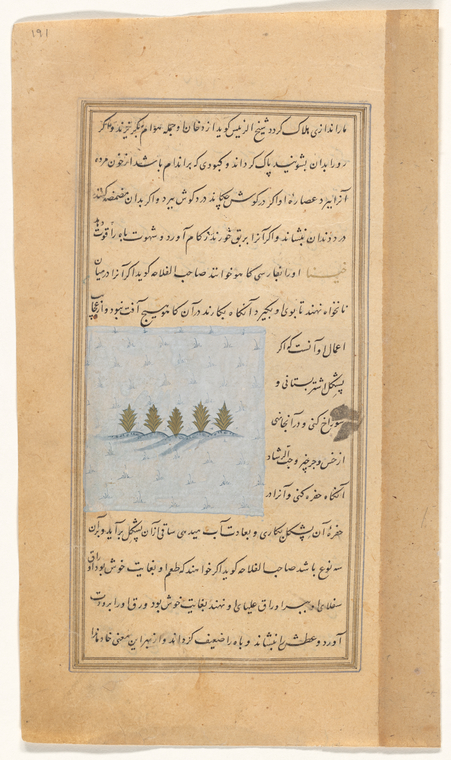 ۱۹۱
مار اندازی هلاک کردد شیخ الرئیس کوید از دخان او جمله هوام بکریزند و اکر
رو را بدان بشویند پاک کرداند و کبودی که بر اندام باشد از خون مرده
آنرا ببرد عصاره او اکر در کوش چکانند درد کوش ببرد و اکر بدان مضمضه کنند
درد دندان بنشاند و اکر آنرا خورند زکام آورد و شهوت باه را قوت دهد
اورا بفارسی کاهو خوانند صاحب الفلاحه کوید اکر آنرا در میان
نانخواه نهند تا بوی او بکیرد آنکاه بکارند در آن کاهو هیچ آفت نبود و از عجایب
اعمال او آنست که اکر
پشکل اشتر بستانی و
سوراخ کنی و در آنجا نهی
از خس و جرجیر و حب الرشاد
آنکاه حفره کنی و آنرا در
حفره آن پشکل بکاری و بعادت آب میدهی ساقی از آن پشکل بر آید و بر آن
سه نوع باشد صاحب الفلاحه کوید اکر خواهند که طعم او بغایت خوش بود اوراق
سفلای او اوراق علیای او نهند بغایت خوش بود ورق اورا برودت
آورد و عطش را بنشاند و باه را ضعیف کرداند و از بهر این معنی خادمانرا